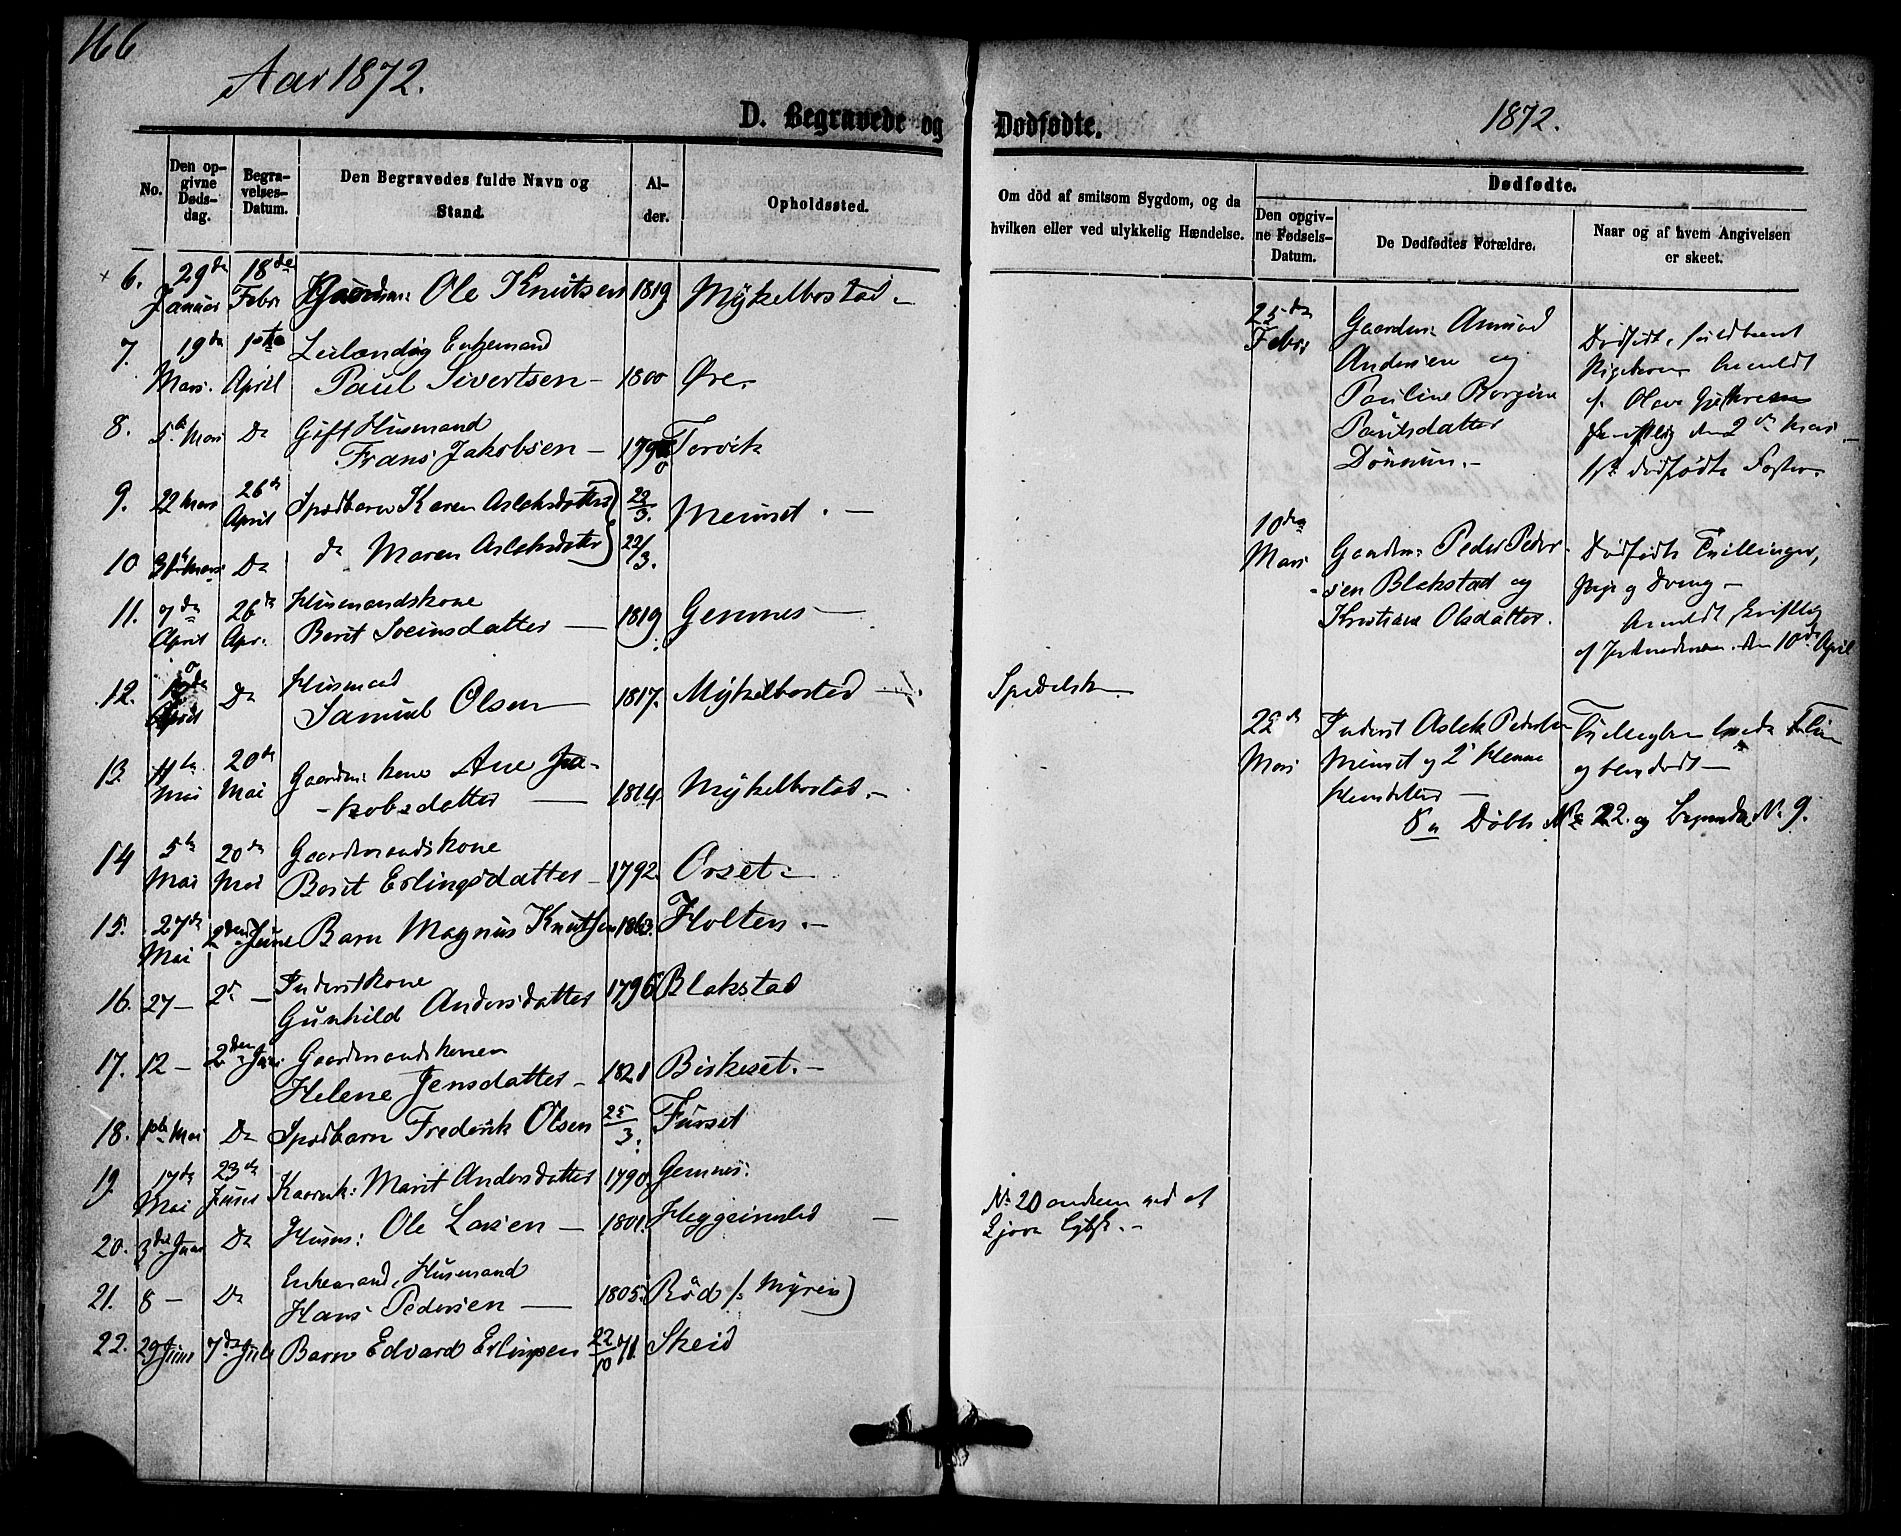 166
Aar 1872.
D. Begravede og Dødfødte.
1872.
No. | Den opgivne Dødsdag. | Begravelses-Datum. | Den Begravedes fulde Navn og Stand. | Alder. | Opholdssted.
Om död af smitsom Sygdom, og da hvilken eller ved ulykkelig Hændelse. | Dødfødte. | Den opgivne Fødsels-Datum. | De Dødfødtes Forældre. | Naar og af hvem Angivelsen er skeet.
6. 29de Januar 18de Febr Ole Knutsen 1819 Mÿkelbostad
7. 19de Mars. 1ste April Enkemand
Paul Sivertsen 1800 Øre.
8. 5te Mai Do Gift Husmand
Frans Jakobsen Torvik
9. 22 Mars 26de April Spædbarn Karen Asleksdatter 22/3. Meinset
10 31te Mars Do do Maren Asleksdatter 22/3.
11. 7de April 26de Apr. Husmandskone
Berit Sveinsdatter 1819 Gemnes
12. April Do Husmand
Samuel Olsen 1817. Mÿkelbostad
Spedalsk
13. 11te Mai 20de Mai Gaardm: kone Ane Ja-
kobsdatter 1814 Mÿkelbostad
14 5te Mai 20de Mai Gaardmandskone
Berit Erlingsdatter 1792 Orset
15. 27de Mai 2den Juni Barn Magnus Knutsen 1863. Holten
16. 27 2d Inderstkone
Gunhild Andersdatter 1796 Blakstad
17. 12 2den Juni Gaardmandskonen
Helene Jensdatter 1821 Birkeset.
18. 1ste Mai Do Spædbarn Frederik Olsen 25/3. Furset
19 17de Mai 23de Juni Kaark: Marit Andersdatter 1790 Gemnes.
20. 3die Juni Do Husm: Ole Larsen 1801. Heggeimslid
No 20 omkom ved at
21. 8 Do Enkemand, Husmand
Hans Pedersen 1805. Röd (: Mÿren)
22. 29 Juni 7de Juli Barn Edvard Erlingsen 22/10 71. Skeid
25de Febr Gaardm: Amund
Andersen og
Pauline Bergine
Paulsdatter
Dødfödt, fuldbaaret
Pigebarn anmeldt
skriftlig den 2den Mars
dødfødte Foster
10de Mars Gaardm: Peder Peder-
sen Blakstad og
Kristiane Olsdatter.
Dødfødte Tvillinger,
Pige og Dreng
Anmeldt skriftlig
af Jordmoderen den 10de April
22de Mars Inderst Aslek Pedersen
Meinset og
og blev dødt
Døbte No 22. og Begravede No 9.